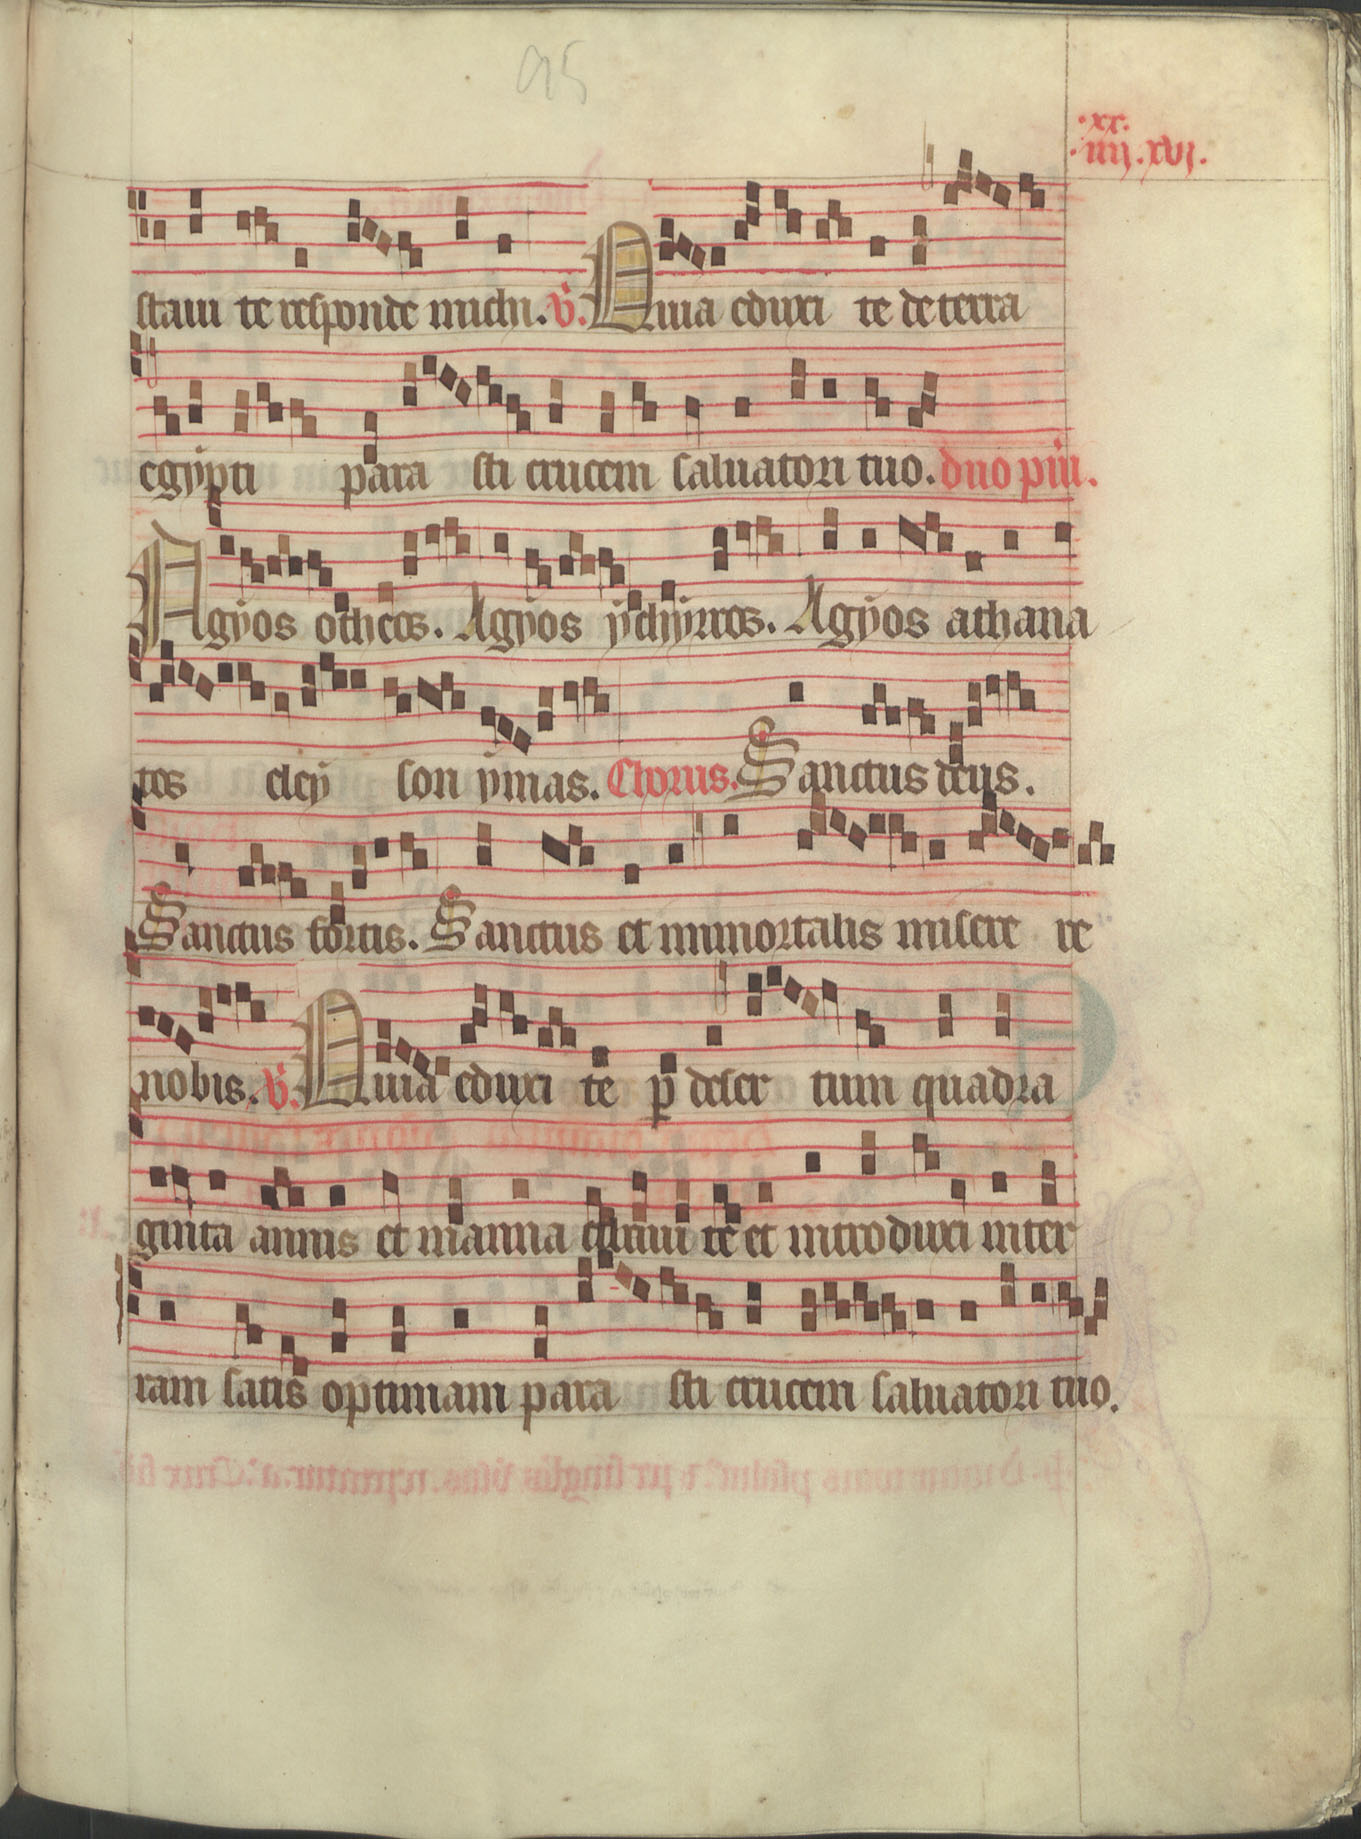 95
.xx.
.iiij.xvj.
staui te responde michi. v̄. Quia eduxi te de terra
egypti para sti crucem saluatori tuo. duo pŭi.
Agyos otheos. Agyos ychyrros. Agyos athana
tos eley son ymas. Chorus. Sanctus deus.
Sanctus fortis. Sanctus et immortalis misere re
nobis. v̄. Quia eduxi te ꝑ deser tum quadra
ginta annis et manna cibaui te et introduxi inter
ram satis optimam para sti crucem saluatori tuo.